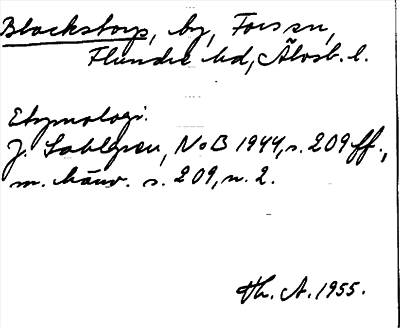 Blackstorp, by, Fors sn,
Flundre hd, Älvsb. l.
Etymologi.
J. Sahlgren, NoB 1944, s. 209 ff.,
m. hänv. s. 209, n. 2.
Th. A. 1955.